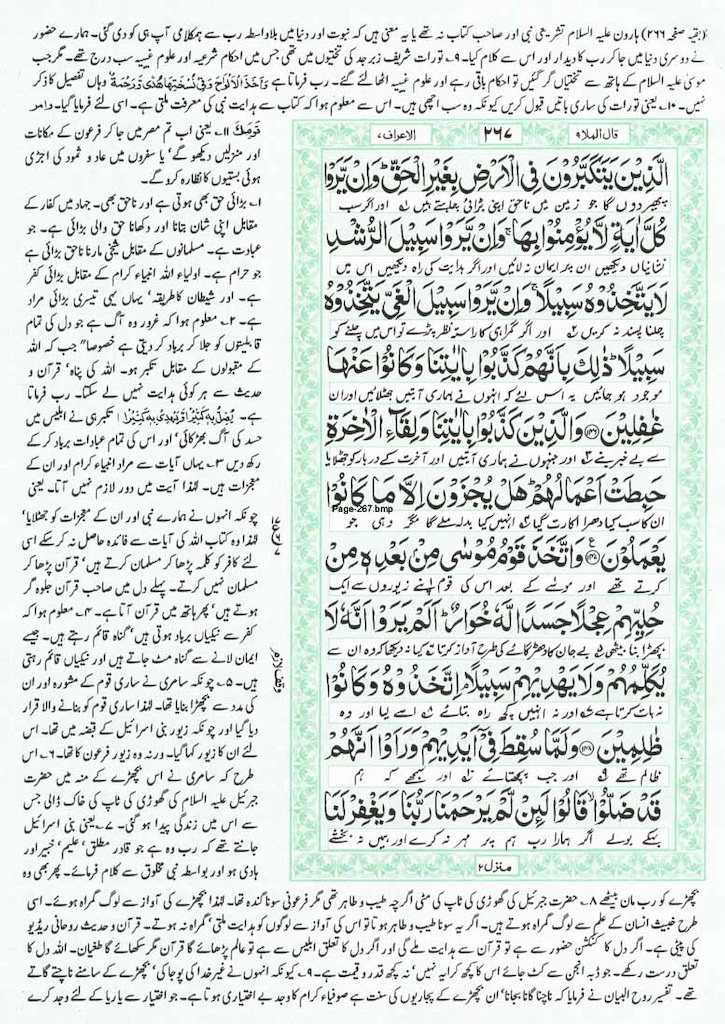 (بقیہ صفحہ ۲۶۶) ہارون علیہ السلام تشریعی نبی اور صاحب کتاب نہ تھے یا یہ معنی ہیں کہ نبوت اور دنیا میں بلاواسطہ رب سے ہمکلامی آپ ہی کو دی گئی۔ ہمارے حضور
نے دوسری دنیا میں جا کر رب کا دیدار اور اس سے کلام کیا۔ ۹۔ تورات شریف زبرجد کی تختیوں میں تھی جس میں احکام شرعیہ اور علوم غیبیہ سب درج تھے۔ مگر جب
موسیٰ علیہ السلام کے ہاتھ سے تختیاں گر گئیں تو احکام باقی رہے اور علوم غیبیہ اٹھا لئے گئے۔ رب فرماتا ہے وَاَخَذَ الْاَلْوَاحَ وَفِیْ نُسْخَتِهَا هُدًی وَّرَحْمَةٌ وہاں تفصیل کا ذکر
نہیں۔ ۱۰۔ یعنی تورات کی ساری باتیں قبول کریں کیونکہ وہ سب اچھی ہیں۔ اس سے معلوم ہوا کہ کتاب سے ہدایت نبی کی معرفت ملتی ہے۔ اسی لئے فرمایا گیا۔ وامر
قومک ۱۱۔ یعنی اب تم مصر میں جا کر فرعون کے مکانات
اور منزلیں دیکھو گے' یا سفروں میں عاد و ثمود کی اجڑی
ہوئی بستیوں کا نظارہ کرو گے۔
۱۔ بڑائی حق بھی ہوتی ہے اور ناحق بھی۔ جہاد میں کفار کے
مقابل اپنی شان بتانا اور دکھانا حق والی بڑائی ہے۔ جو
عبادت ہے۔ مسلمانوں کے مقابل شیخی مارنا ناحق بڑائی ہے
جو حرام ہے۔ اولیاء اللہ انبیاء کرام کے مقابل بڑائی کفر
ہے۔ اور شیطان کا طریقہ' یہاں یہی تیسری بڑائی مراد
ہے۔ ۲۔ معلوم ہوا کہ غرور وہ آگ ہے جو دل کی تمام
قابلیتوں کو جلا کر برباد کر دیتی ہے خصوصا" جب کہ اللہ
کے مقبولوں کے مقابل تکبر ہو۔ اللہ کی پناہ' قرآن و
حدیث سے ہر کوئی ہدایت نہیں لے سکتا۔ رب فرماتا
ہے۔ یُضِلُّ بِهٖ کَثِیْرًا وَّیَهْدِیْ بِهٖ کَثِیْرًا تکبر ہی نے ابلیس میں
حسد کی آگ بھڑکائی' اور اس کی تمام عبادات برباد کر کے
رکھ دیں ۳۔ یہاں آیات سے مراد انبیاء کرام اور ان کے
معجزات ہیں۔ لہٰذا آیت میں دور لازم نہیں آتا۔ یعنی
چونکہ انہوں نے ہمارے نبی اور ان کے معجزات کو جھٹلایا'
لہٰذا وہ کتاب اللہ کی آیات سے فائدہ حاصل نہ کر سکے اسی
لئے کافر کو کلمہ پڑھا کر مسلمان کرتے ہیں' قرآن پڑھا کر
مسلمان نہیں کرتے۔ پہلے دل میں صاحب قرآن جلوہ گر
ہوتے ہیں' پھر ہاتھ میں قرآن آتا ہے۔ ۴۔ معلوم ہوا کہ
کفر سے نیکیاں برباد ہوتی ہیں' گناہ قائم رہتے ہیں۔ جیسے
ایمان لانے سے گناہ مٹ جاتے ہیں اور نیکیاں قائم رہتی
ہیں۔ ۵۔ چونکہ سامری نے ساری قوم کے مشورہ اور ان
کی مدد سے بچھڑا بنایا تھا۔ لہٰذا ساری قوم کو بنانے والا قرار
دیا گیا اور چونکہ زیور بنی اسرائیل کے قبضہ میں تھا۔ اس
لئے ان کا زیور کہا گیا۔ ورنہ وہ زیور فرعون کا تھا۔ ۶۔ اس
طرح کہ سامری نے اس بچھڑے کے منہ میں حضرت
جبرئیل علیہ السلام کی گھوڑی کی ٹاپ کی خاک ڈالی جس
سے اس میں زندگی پیدا ہو گئی۔ ۷۔ یعنی بنی اسرائیل
جانتے تھے کہ رب وہ ہے جو قادر مطلق' علیم' خبیر اور
ہادی ہو اور بواسطہ نبی مخلوق سے کلام فرمائے۔ پھر بھی وہ
وقف لازم
قال الملا۹
۲۶۷
الاعراف۷
الَّذِیْنَ یَتَكَبَّرُوْنَ فِی الْاَرْضِ بِغَیْرِ الْحَقِّ وَاِنْ یَّرَوْا
پھیر دوں گا جو زمین میں ناحق اپنی بڑائی چاہتے ہیں اور اگر سب
كُلَّ اٰیَةٍ لَّا یُؤْمِنُوْا بِهَا وَاِنْ یَّرَوْا سَبِیْلَ الرُّشْدِ
نشانیاں دیکھیں ان پر ایمان نہ لائیں اور اگر ہدایت کی راہ دیکھیں اس میں
لَا یَتَّخِذُوْهُ سَبِیْلًا وَاِنْ یَّرَوْا سَبِیْلَ الْغَیِّ یَتَّخِذُوْهُ
چلنا پسند نہ کریں اور اگر گمراہی کا راستہ نظر پڑے تو اس میں چلنے کو
سَبِیْلًا ذٰلِكَ بِاَنَّهُمْ كَذَّبُوْا بِاٰیٰتِنَا وَكَانُوْا عَنْهَا
موجود ہو جائیں یہ اس لئے کہ انہوں نے ہماری آیتیں جھٹلائیں اور ان
غٰفِلِیْنَ ﴿۱۴۶﴾ وَالَّذِیْنَ كَذَّبُوْا بِاٰیٰتِنَا وَلِقَآءِ الْاٰخِرَةِ
سے بے خبر بنے اور جنہوں نے ہماری آیتیں اور آخرت کے دربار کو جھٹلایا
حَبِطَتْ اَعْمَالُهُمْ هَلْ یُجْزَوْنَ اِلَّا مَا كَانُوْا
Page-267.bmp
ان کا سب کیا دھرا اکارت گیا انہیں کیا بدلہ ملے گا مگر وہی جو
یَعْمَلُوْنَ ﴿۱۴۷﴾ وَاتَّخَذَ قَوْمُ مُوْسٰی مِنْ بَعْدِهٖ مِنْ
کرتے تھے اور موسیٰ کے بعد اس کی قوم اپنے زیوروں سے ایک
حُلِیِّهِمْ عِجْلًا جَسَدًا لَّهٗ خُوَارٌ اَلَمْ یَرَوْا اَنَّهٗ لَا
بچھڑا بنا بیٹھی بے جان کا دھڑ گائے کی طرح آواز کرتا کیا نہ دیکھا کہ وہ ان سے
یُكَلِّمُهُمْ وَلَا یَهْدِیْهِمْ سَبِیْلًا اِتَّخَذُوْهُ وَكَانُوْا
نہ بات کرتا ہے اور نہ انہیں کچھ راہ بتائے اسے لیا اور وہ
ظٰلِمِیْنَ ﴿۱۴۸﴾ وَلَمَّا سُقِطَ فِیْۤ اَیْدِیْهِمْ وَرَاَوْا اَنَّهُمْ
ظالم تھے اور جب پچھتائے اور سمجھے کہ ہم
قَدْ ضَلُّوْا قَالُوْا لَئِنْ لَّمْ یَرْحَمْنَا رَبُّنَا وَیَغْفِرْ لَنَا
بہکے بولے اگر ہمارا رب ہم پر مہر نہ کرے اور ہمیں نہ بخشے
منزل۲
بچھڑے کو رب مان بیٹھے ۸۔ حضرت جبرئیل کی گھوڑی کی ٹاپ کی مٹی اگرچہ طیب و طاہر تھی مگر فرعونی سونا گندہ تھا۔ لہٰذا بچھڑے کی آواز سے لوگ گمراہ ہوئے۔ اسی
طرح خبیث انسان کے علم سے لوگ گمراہ ہوتے ہیں۔ اگر یہ سونا طیب و طاہر ہوتا تو اس کی آواز سے لوگوں کو ہدایت ملتی' گمراہ نہ ہوتے۔ قرآن و حدیث روحانی ریڈیو
کی پیٹی ہے۔ اگر دل کا کنکشن حضور سے ہے تو قرآن سے ہدایت ملے گی اور اگر دل کا تعلق ابلیس سے ہے تو عالم پڑھائے گا قرآن مگر سکھائے گا طغیان۔ اللہ دل کا
تعلق درست رکھے۔ جو ڈبہ انجن سے کٹ جائے اس کا کچھ کرایہ نہیں' نہ کچھ قدر و قیمت ہے۔ ۹۔ کیونکہ انہوں نے غیر خدا کی پوجا کی' بچھڑے کے سامنے ناچتے گاتے
تھے۔ تفسیر روح البیان نے فرمایا کہ ناچنا گانا بجانا' ان بچھڑے کے پجاریوں کی سنت ہے صوفیاء کرام کا وجد بے اختیاری ہوتا ہے۔ جو اختیار سے یا ریا کے لئے وجد کرے